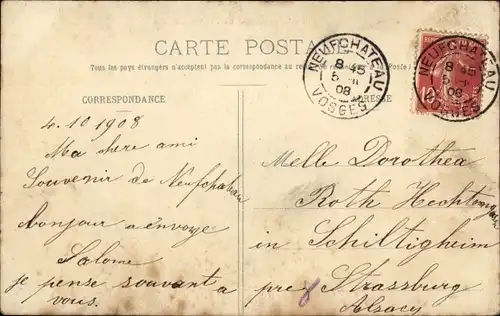 CARTE POSTALE
Tous les pays étrangers n'acceptent pas la correspondance au recto Poste)
CORRESPONDANCE
ADRESSE
NEUFCHATEAU
8 45
5
08
VOSGES
NEUFCHATEAU
8 45
5
08
VOSGES
10
4. 10 1908
Ma chere ami
Souvenir de Neufchateau
bonjour a envoye
Salome
je pense souvant a
vous.
Melle Dorothea
Roth
in Schiltigheim
pre Strassburg
Alsacy